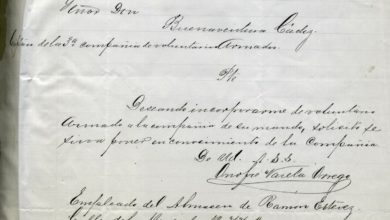 Señor Don
Buenaventura Cádiz
de la 3ª compañia de voluntarios Armados
Pte
Deseando incorporarme de voluntario
Armado a la compañia de su mando, solicito se
sirva poner en conocimiento de la Compañia
De Ud. A. S. S.
Onofre Varela Orrego
Empleado del Almacen de Ramon Estevez